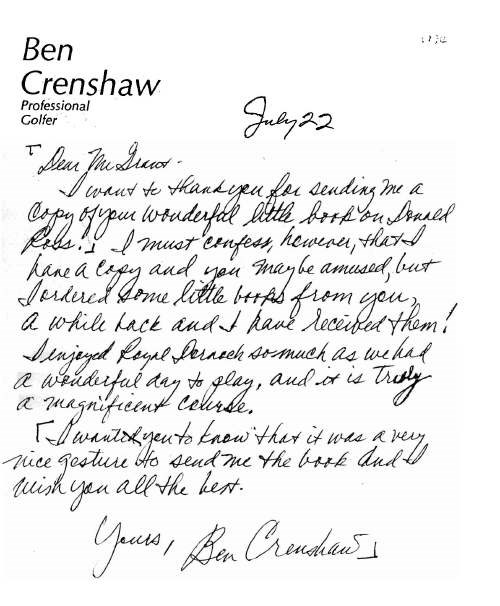 Ben
Crenshaw
Professional
Golfer
July 22
Dear Mr. Grant -
I want to thank you for sending me a
copy of your wonderful little book on Donald
Ross! I must confess, however, that I
have a copy and you may be amused, but
I ordered some little books from you,
a while back and I have received them!
I enjoyed Royal Dornoch so much as we had
a wonderful day to play, and it is truly
a magnificent course.
I wanted you to know that it was a very
nice gesture to send me the book and I
wish you all the best.
Yours, Ben Crenshaw